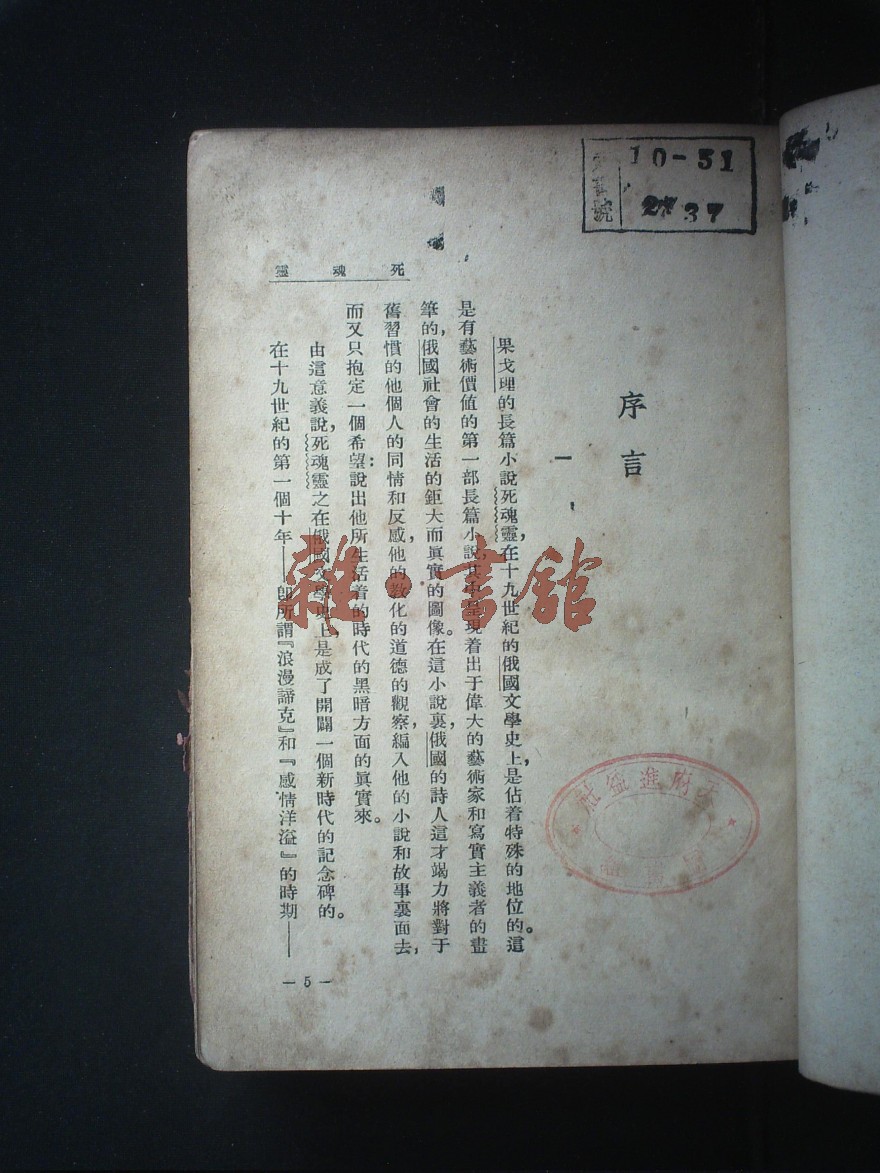 10-51
2737
序言
一
果戈理的長篇小說死魂靈,在十九世紀的俄國文學史上,是佔着特殊的地位的。這
是有藝術價值的第一部長篇小說,其中呈現着出于偉大的藝術家和寫實主義者的畫
筆的,俄國社會的生活的鉅大而眞實的圖像。在這小說裏,俄國的詩人這才竭力將對于
舊習慣的他個人的同情和反感,他的教化的道德的觀察,編入他的小說和故事裏面去,
而又只抱定一個希望:說出他所生活着的時代的黑暗方面的眞實來。
由這意義說,死魂靈之在俄國文學史上,是成了開闢一個新時代的記念碑的。
在十九世紀的第一個十年——卽所謂『浪漫諦克』和『感情洋溢』的時期——
死魂靈
— 5 —
雜·書館
府進益社